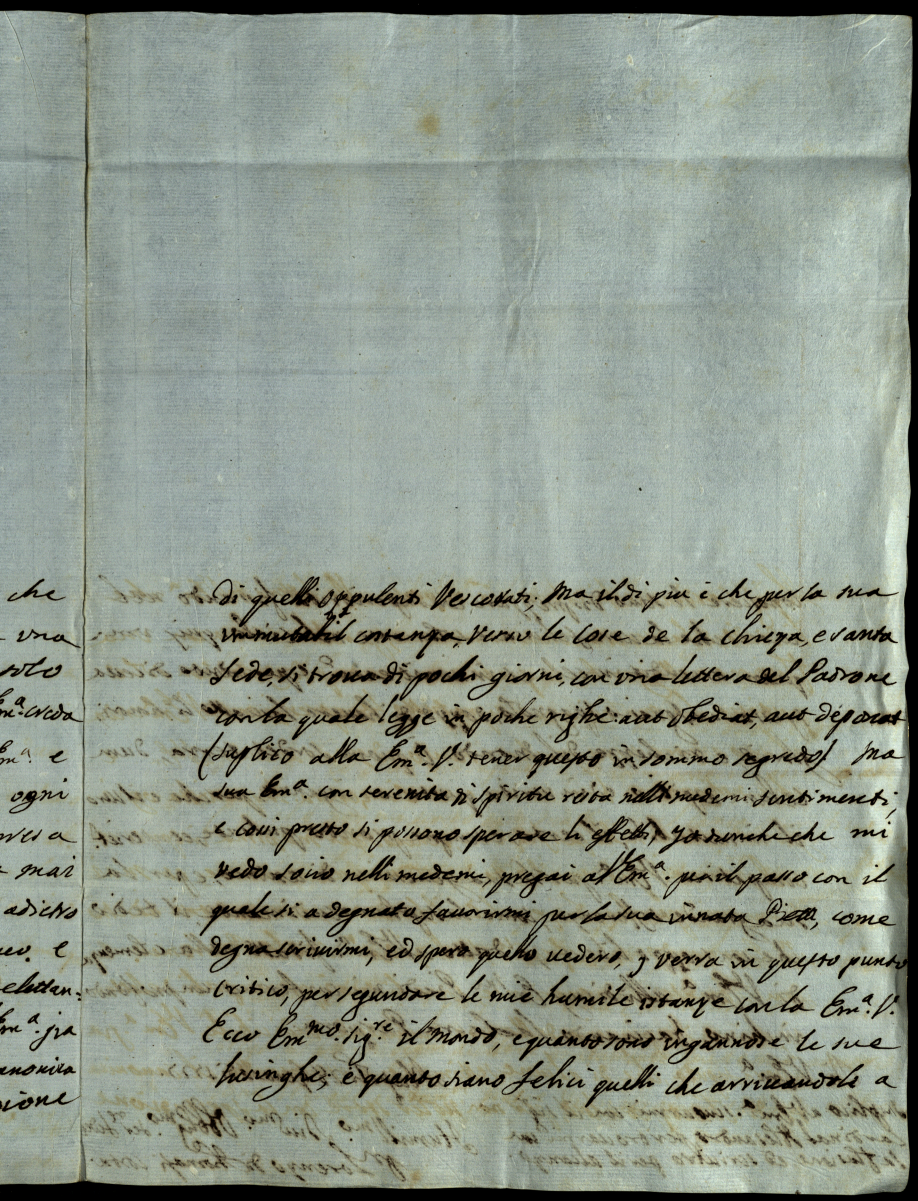 che
una
solo
Em.ª creda
Em.ª e
ogni
mai
adietro
e
Em.ª
di quelli oppulenti Vescovati; Ma il di piu è che per la sua
immutabil costanza, verso le Cose de la chiesa, e santa
Sede, si trova di pochi giorni, con una lettera del Padrone
con la quale legge in poche righe: aut obediat, aut deponat
(suplico alla Em.ª V. tener questo in sommo segredo) Ma
sua Em.ª con serenita di spiritu resta nelli medemi sentimenti,
e cosi presto si possono sperare li effetti, Jo dunche che mi
vedo socio nelli medemi, pregai a V Em.ª per il passo con il
quale si a degnato favorirmi per la sua innata Pietà, come
degna scrivirmi, ed spero quello vedero, y verra in questo punto
Critico, per segundare le mie humile istanze con la Em.ª V.
Ecco Em.mo Sig.re il Mondo, e quanto sono ingannose le sue
lusinghe; e quanto siano felici quelli che arrivandole a